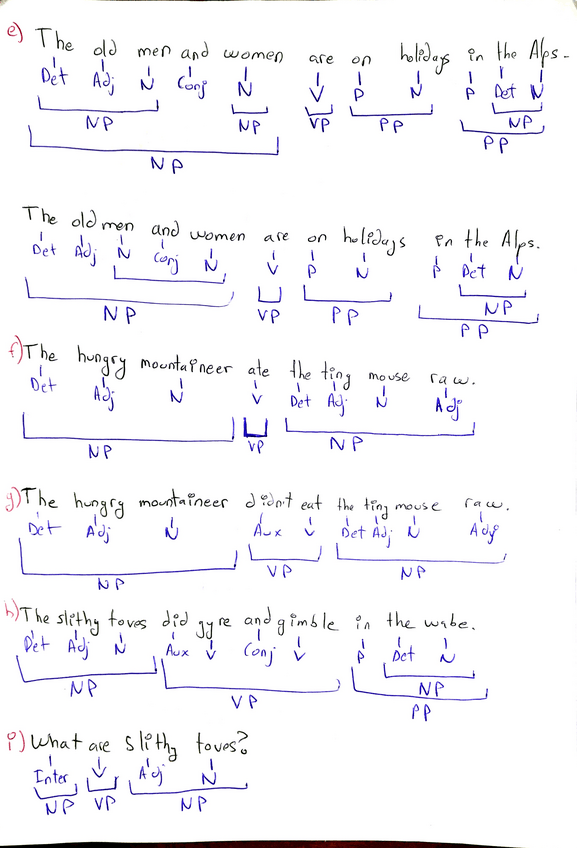 e) The old men and women are on holidays in the Alps.
Det Adj N Conj N V P N P Det N
NP NP VP PP NP
NP PP
The old men and women are on holidays in the Alps.
Det Adj N Conj N V P N P Det N
NP VP PP NP
PP
f) The hungry mountaineer ate the ting mouse raw.
Det Adj N V Det Adj N Adj
NP VP NP
g) The hungry mountaineer didn't eat the ting mouse raw.
Det Adj N Aux V Det Adj N Adj
NP VP NP
h) The slithy toves did gyre and gimble in the wabe.
Det Adj N Aux V Conj V P Det N
NP VP NP
PP
i) What are slithy toves?
Inter V Adj N
NP VP NP